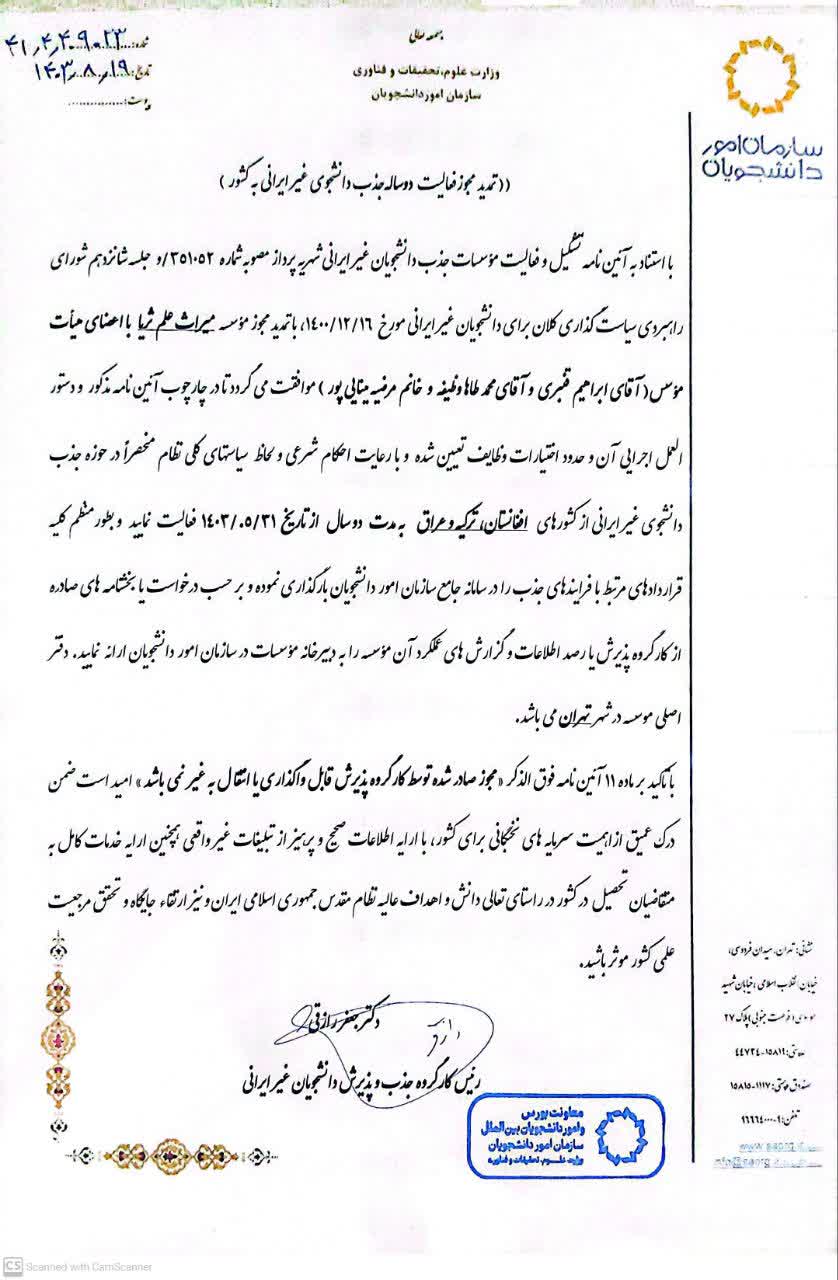 بسمه تعالی
وزارت علوم، تحقیقات و فناوری
سازمان امور دانشجویان
شماره: ۴۱,۴,۴۹۰۲۳
تاریخ: ۱۴۰۳,۸,۱۹
پیوست:
سازمان امور
دانشجویان
((تمدید مجوز فعالیت دوساله جذب دانشجوی غیر ایرانی به کشور )
با استناد به آئین نامه تشکیل و فعالیت مؤسسات جذب دانشجویان غیر ایرانی شهریه پرداز مصوبه شماره ۳۵۱۰۵۲/و جلسه شانزدهم شورای
راهبردی سیاست گذاری کلان برای دانشجویان غیر ایرانی مورخ ۱۴۰۰/۱۲/۱۶، با تمدید مجوز مؤسسه میراث علم ثریا با اعضای هیأت
مؤسس( آقای ابراهیم قنبری و آقای محمد طاها وظیفه و خانم مرضیه مینایی پور ) موافقت می گردد تا در چارچوب آئین نامه مذکور و دستور
العمل اجرایی آن و حدود اختیارات وظایف تعیین شده و با رعایت احکام شرعی و لحاظ سیاستهای کلی نظام منحصراً در حوزه جذب
دانشجوی غیر ایرانی از کشورهای افغانستان، ترکیه و عراق به مدت دو سال از تاریخ ۱۴۰۳/۰۵/۳۱ فعالیت نماید و بطور منظم کلیه
قراردادهای مرتبط با فرایندهای جذب را در سامانه جامع سازمان امور دانشجویان بارگذاری نموده و بر حسب درخواست یا بخشنامه های صادره
از کارگروه پذیرش یا رصد اطلاعات و گزارش های عملکرد آن مؤسسه را به دبیرخانه مؤسسات در سازمان امور دانشجویان ارائه نمایید. دفتر
اصلی موسسه در شهر تهران می باشد.
با تأکید بر ماده ۱۱ آئین نامه فوق الذکر « مجوز صادر شده توسط کارگروه پذیرش قابل واگذاری یا انتقال به غیر نمی باشد » امید است ضمن
درک عمیق از اهمیت سرمایه های نخبگانی برای کشور، با ارایه اطلاعات صحیح و پرهیز از تبلیغات غیر واقعی همچنین ارایه خدمات کامل به
متقاضیان تحصیل در کشور در راستای تعالی دانش و اهداف عالیه نظام مقدس جمهوری اسلامی ایران و نیز ارتقاء جایگاه و تحقق مرجعیت
علمی کشور موثر باشید.
دکتر جعفر رازقی
رئیس کارگروه جذب و پذیرش دانشجویان غیر ایرانی
معاونت بورس
و امور دانشجویان بین الملل
سازمان امور دانشجویان
وزارت علـوم، تحقیقات و فناوری
نشانی: تهران، میدان فردوسی،
خیابان انقلاب اسلامی، خیابان شهید
موسوی (فرصت جنوبی) پلاک ۲۷
کدپستی: ۱۵۸۱۹-۴۴۷۳۴
صندوق پستی: ۱۱۱۷-۱۵۸۱۵
تلفن: ۱-۹۶۶۶۴۰۰۰
CS Scanned with CamScanner